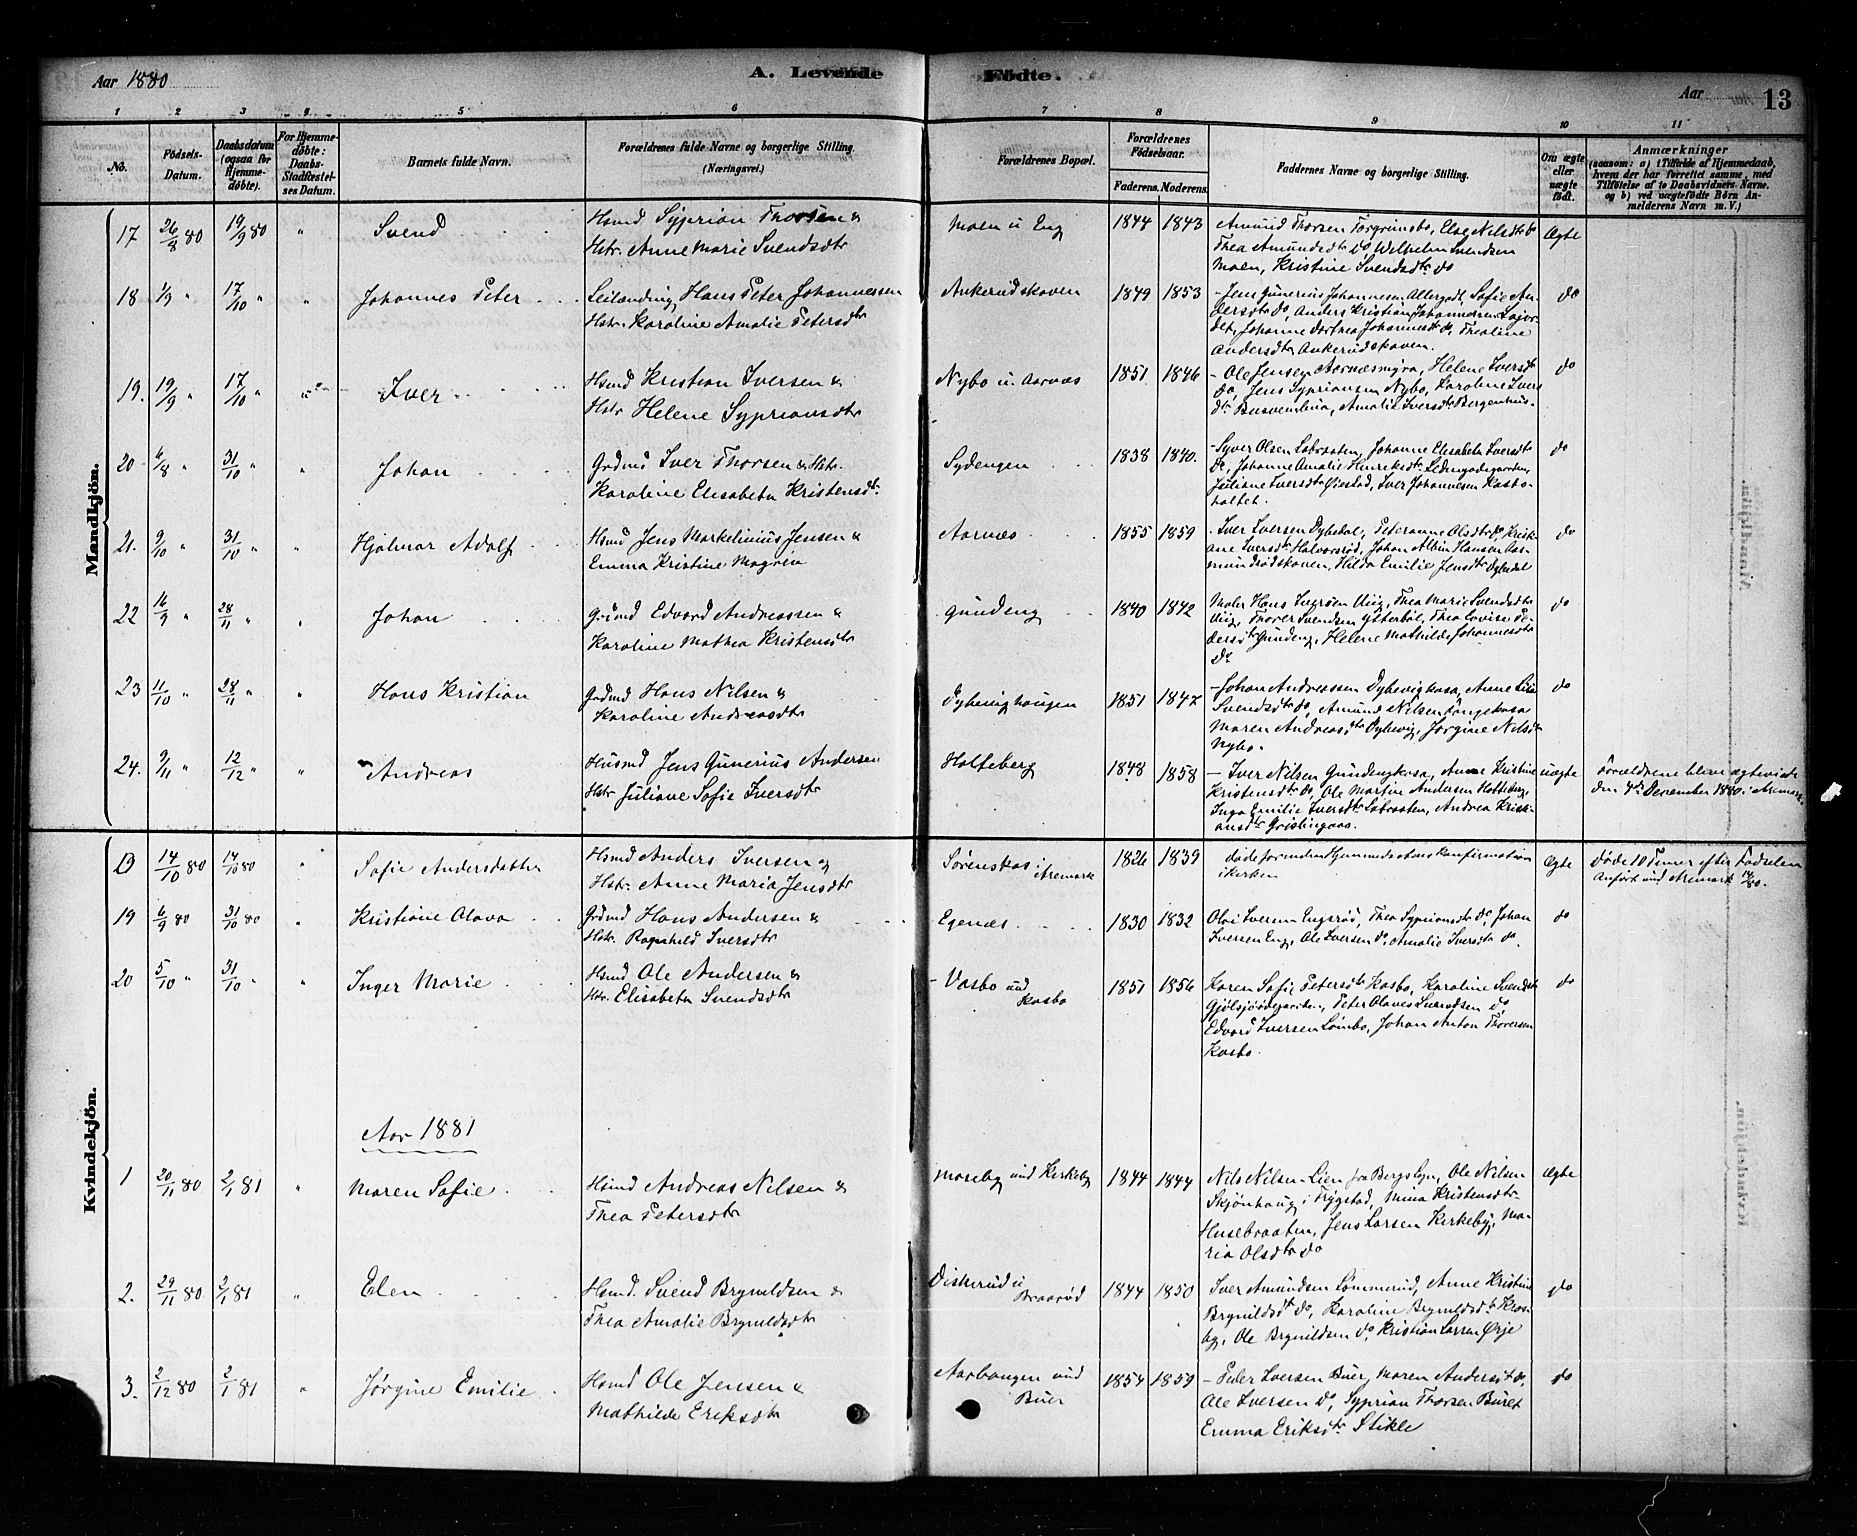 Aar 1880
A. Levende Födte.
Aar
13
1 2 3 4 5 6 7 8 9 10 11
No.
Födsels-Datum.
Daabsdatum (ogsaa for Hjemmedöbte).
For Hjemmedöbte: Daabs-Stadfæstelses Datum.
Barnets fulde Navn.
Forældrenes fulde Navne og borgerlige Stilling. (Næringsvei.)
Forældrenes Bopæl.
Forældrenes Födselsaar.
Faderens. Moderens.
Faddernes Navne og borgerlige Stilling.
Om ægte eller uægte födt.
Anmærkninger
(saasom: a) i Tilfælde af Hjemmedaab, hvem der har forrettet samme, med Tilföielse af to Daabsvidners Navne, og b) ved uægtefödte Börn Anmelderens Navn m. V.)
Mandkjön.
17 26/8 80 19/9 80 " Svend
Hsmd Syprian Thorsen &
Hstr. Anne Marie Svendsdtr
Moen u Eng 1844 1843
Amund Thorsen Torgrimsbo, Else Nilsdtr do
Thea Amundsdtr do, Wilhelm Svendsen
Moen, Kristine Svendsdtr do
Ægte
18 1/9 " 17/10 " " Johannes Peter
Leilænding Hans Peter Johannessen
Hstr. Karoline Amalie Petersdtr
Ankerudskoven 1849 1853
- Jens Gunerius Johannesen Allergodt, Sofie An-
dersdtr do, Anders Kristian Johannesen
det, Johanne Dorthea Johannesdtr do, Thealine
Andersdtr Ankerudskoven.
do
19. 19/9 " 17/10 " " Iver
Hsmd Kristian Iversen &
Hstr Helene Sypriansdtr
Nybo u. Aarnæs 1851 1846
- Ole Jensen Aarnæsmyra, Helene Iversdtr
do, Jens Sypriansen Nybo, Karoline Ivers
dtr, Amalie Iversdtr Bergenhus-
do
20 6/8 " 31/10 " " Johan
Grdmd Iver Thorsen & Hstr.
Karoline Elisabeth Kristensdtr.
Sydengen 1838 1840.
- Syver Olsen Labraaten, Johanne Elisabeth Iversdtr
do, Johanne Amalie Henriksdtr
Juliane Iversdtr Øiestad, Iver Johannesen Kasbo-
holtet.
do
21. 9/10 " 31/10 " " Hjalmar Adolf
Hsmd Jens Markelinius Jensen &
Emma Kristine Magrin
Aarnæs 1855 1859
- Iver Iversen Dybedal, Peteranne Olsdtr do, Krist-
ane Iversdtr Halvorsrød, Johan Albin Hansen Aas-
mundrødskoven, Hilda Emilie Jensdtr Dybedal
do
22 16/9 " 28/11 " " Johan
Grdmd Edvard Andreassen &
Karoline Mathea Kristensdtr
Gundeng 1840 1842
Maler Hans Iversen Viig, Thea Marie Svendsdtr
Viig, Thorer Svendsen Ytterbøl, Thea Lovise Pe-
dersdtr Gundeng, Helene Mathilde Johannesdtr
do
do
23 11/10 " 28/11 " " Hans Kristian
Grdmd Hans Nilsen &
Karoline Andreasdtr
Dybevighaugen 1851 1847
- Johan Andreassen Dybevigkasa, Anne Lise
Svendsdtr do, Amund Nilsen Langekasa
Maren Andreasdtr Dybevig, Jørgine Nilsdtr
Nybo.
do
24. 9/11 " 12/12 " " Andreas
Husmd Jens Gunerius Andersen
Hstr Juliane Sofie Iversdtr
Holteberg 1848 1858
- Iver Nilsen Gundengkasa, Anne Kristine
Kristensdtr do, Ole Martin Andersen Holteberg,
Inga Emilie Iversdtr Labraaten, Andrea Krist-
ansdtr
uægte
Forældrene bleve ægteviede
den 4de December 1880 i Aremark.
Kvindekjön.
13 14/10 80 14/10 80 " Sofie Andersdatter
Hsmd Anders Iversen og
Hstr. Anne Maria Jensdtr
Sørenskas i Aremark 1826 1839
døde forinden Hjemmedaabens konfirmation
i kirken
Ægte
Døde 10 Timer efter Fødselen
Anført ved Aremark 14/10 80.
19 6/9 80 31/10 80 " Kristiane Olava
Grdmd Hans Andersen &
Hstr. Ragnhild Iversdtr
Egenæs 1830 1832
Olai Iversen Engsrød, Thea Sypriansdtr do, Johan
Iversen Eng, Ole Iversen do, Amalie Iversdtr do.
do
20 5/10 " 31/10 " " Inger Marie
Hsmd Ole Andersen &
Hstr. Elisabeth Svendsdtr
- Vasbo und Kasbo 1851 1856
Karen Sofie Petersdtr Kasbo, Karoline Svendsdtr
Gjølsjøødegaarden, Peter Olaves Svendsen do
Edvard Iversen Lømbo, Johan Anton Thoresen
Kasbo.
do
Aar 1881
1 20/11 80 2/1 81 " Maren Sofie
Hsmd Andreas Nilsen &
Thea Petersdtr
Moseby und Kirkeby 1844 1844
Nils Nilsen Lien fra Bergs Sgn, Ole Nilsen
Skjønhaug i Trygstad, Mina Kristensdtr
Husebraaten, Jens Larsen Kirkeby, Ma-
ria Olsdtr do
Ægte
2. 29/11 80 2/1 81 " Elen
Hsmd. Svend Brynildsen &
Thea Amalie Brynildsdtr
Diskerud u Braarød 1844 1850
Iver Amundsen Lømmerud, Anne Kristine
Brynildsdtr do, Karoline Brynildsdtr Kros-
by, Ole Brynildsen do Kristian Larsen Ørje
do
3. 2/12 80 2/1 81 " Jørgine Emilie
Hsmd Ole Jensen &
Mathilde Eriksdtr
Aarbougen und Buer 1854 1859
- Peder Iversen Buer, Maren Andersdtr do,
Ole Iversen do, Syprian Thorsen Buret
Emma Eriksdtr Stikle
do